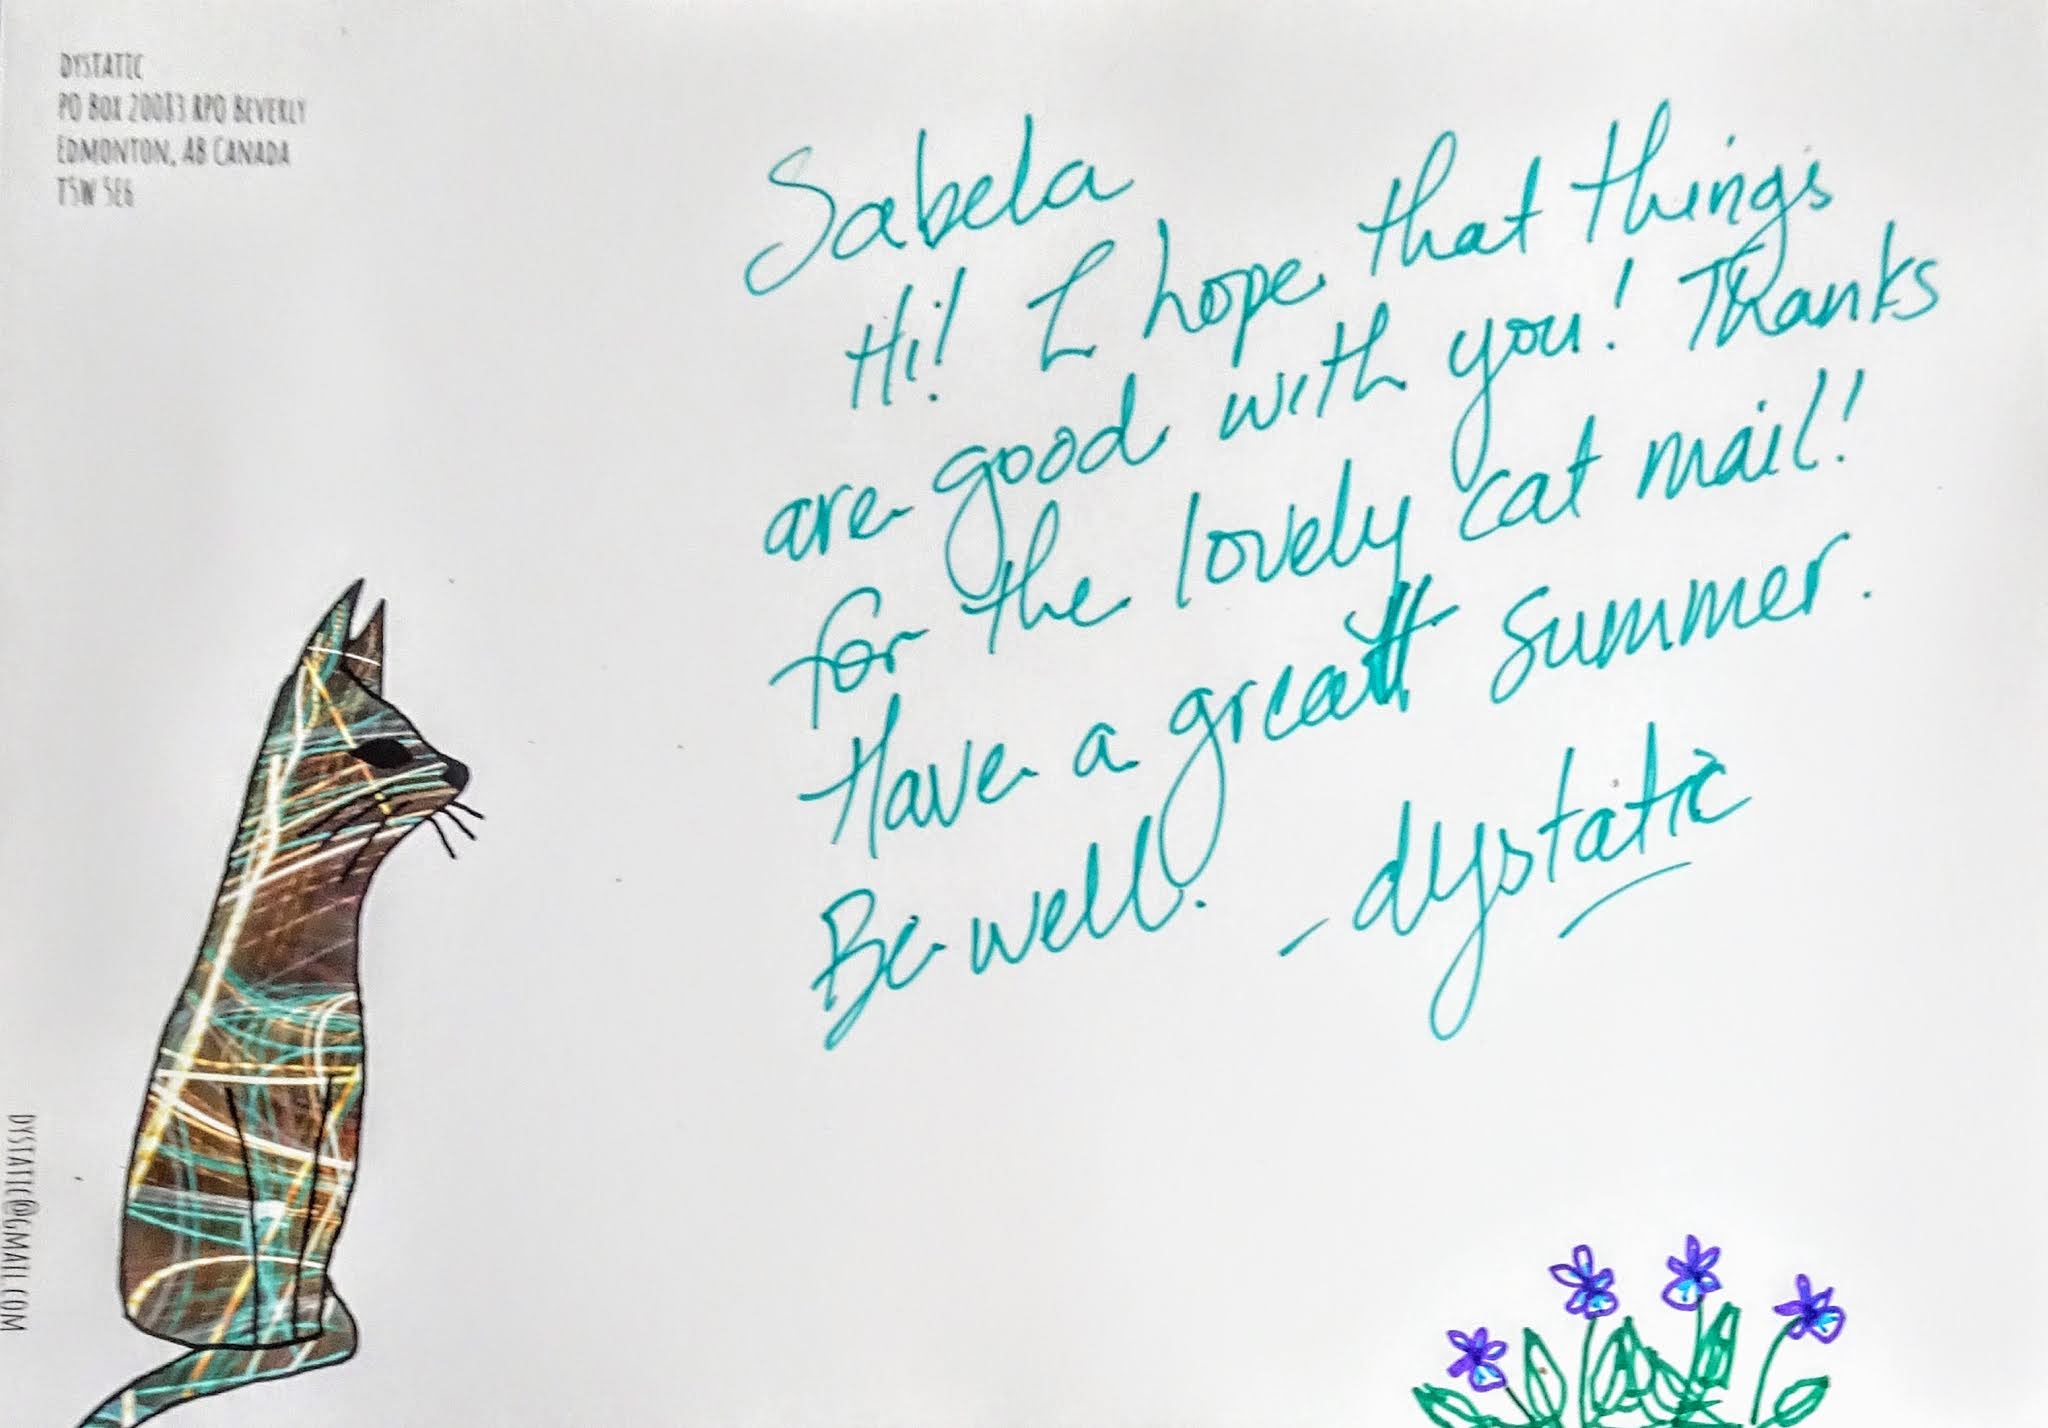 DYSTATIC
PO BOX 20083 RPO BEVERLY
EDMONTON, AB CANADA
T5W 5E6
Sabela
Hi! I hope that things
are good with you! Thanks
for the lovely cat mail!
Have a great summer.
Be well. - dystatic
DYSTATIC@GMAIL.COM